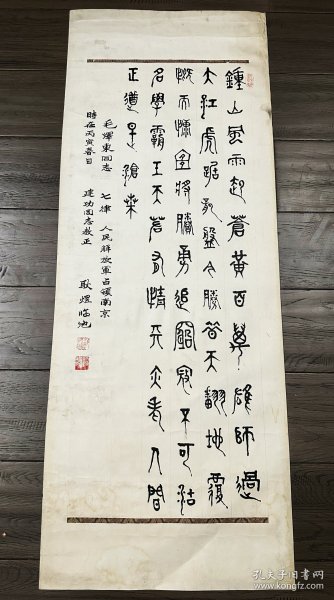 鍾山風雨起蒼黃百萬雄師過
大江虎踞龍盤今勝昔天翻地覆
慨而慷宜將勝勇追窮寇不可沽
名學霸王天若有情天亦老人間
正道是滄桑
毛澤東同志 七律 人民解放軍占領南京
時在丙寅春日 建功同志教正
耿煜臨池
孔夫子旧书网